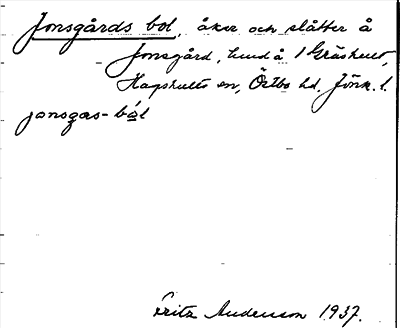 Jonsgårds bol, åker och slåtter å
Jonsgård, hmd å 1 Gräshult,
Hagshults sn, Östbo hd. Jönk. l.
jonsgas-bol
Fritz Anderson 1937.